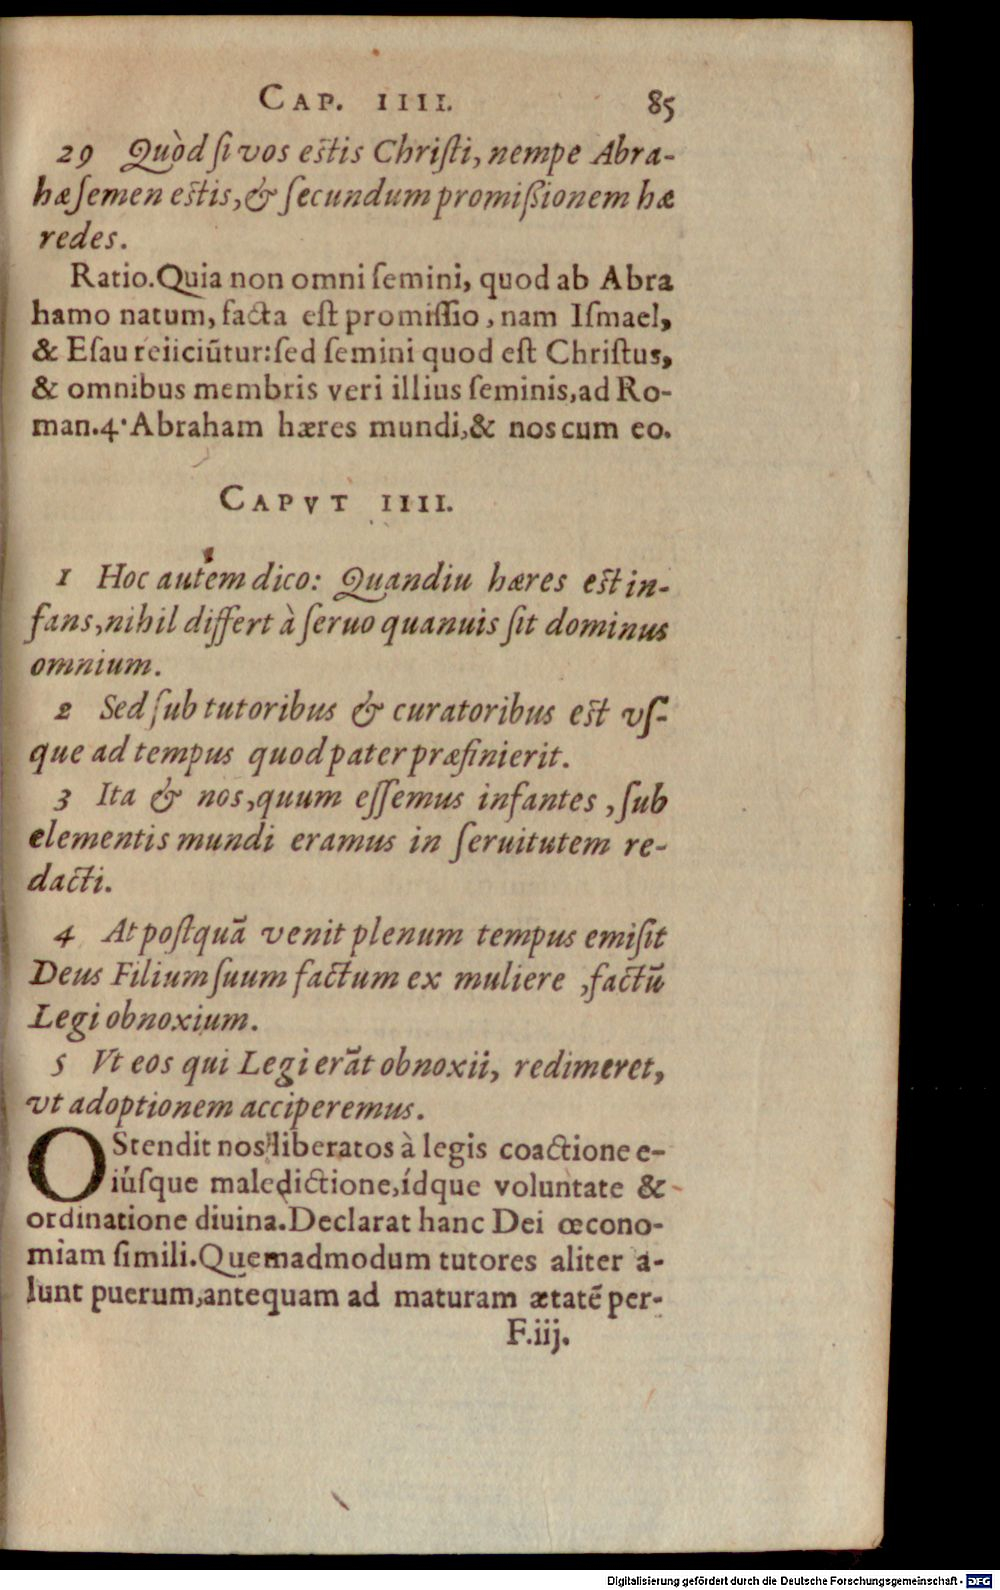 CAP. IIII. 85
29 Quòd ſi vos eſtis Chriſti, nempe Abra-
hæ ſemen eſtis, & ſecundum promiſsionem hæ
redes.
Ratio. Quia non omni ſemini, quod ab Abra
hamo natum, facta eſt promiſſio, nam Iſmael,
& Eſau reiiciũtur: ſed ſemini quod eſt Chriſtus,
& omnibus membris veri illius ſeminis, ad Ro-
man. 4. Abraham hæres mundi, & nos cum eo.
CAPVT IIII.
1 Hoc autem dico: Quandiu hæres eſt in-
fans, nihil differt à ſeruo quanuis ſit dominus
omnium.
2 Sed ſub tutoribus & curatoribus eſt vſ-
que ad tempus quod pater præfinierit.
3 Ita & nos, quum eſſemus infantes, ſub
elementis mundi eramus in ſeruitutem re-
dacti.
4 At poſtquã venit plenum tempus emiſit
Deus Filium ſuum factum ex muliere, factũ
Legi obnoxium.
5 Vt eos qui Legi erãt obnoxii, redimeret,
vt adoptionem acciperemus.
OStendit nos liberatos à legis coactione e-
iúſque maledictione, ídque voluntate &
ordinatione diuina. Declarat hanc Dei œcono-
miam ſimili. Quemadmodum tutores aliter a-
lunt puerum, antequam ad maturam ætatẽ per-
F.iij.
Digitalisierung gefördert durch die Deutsche Forschungsgemeinschaft - DFG